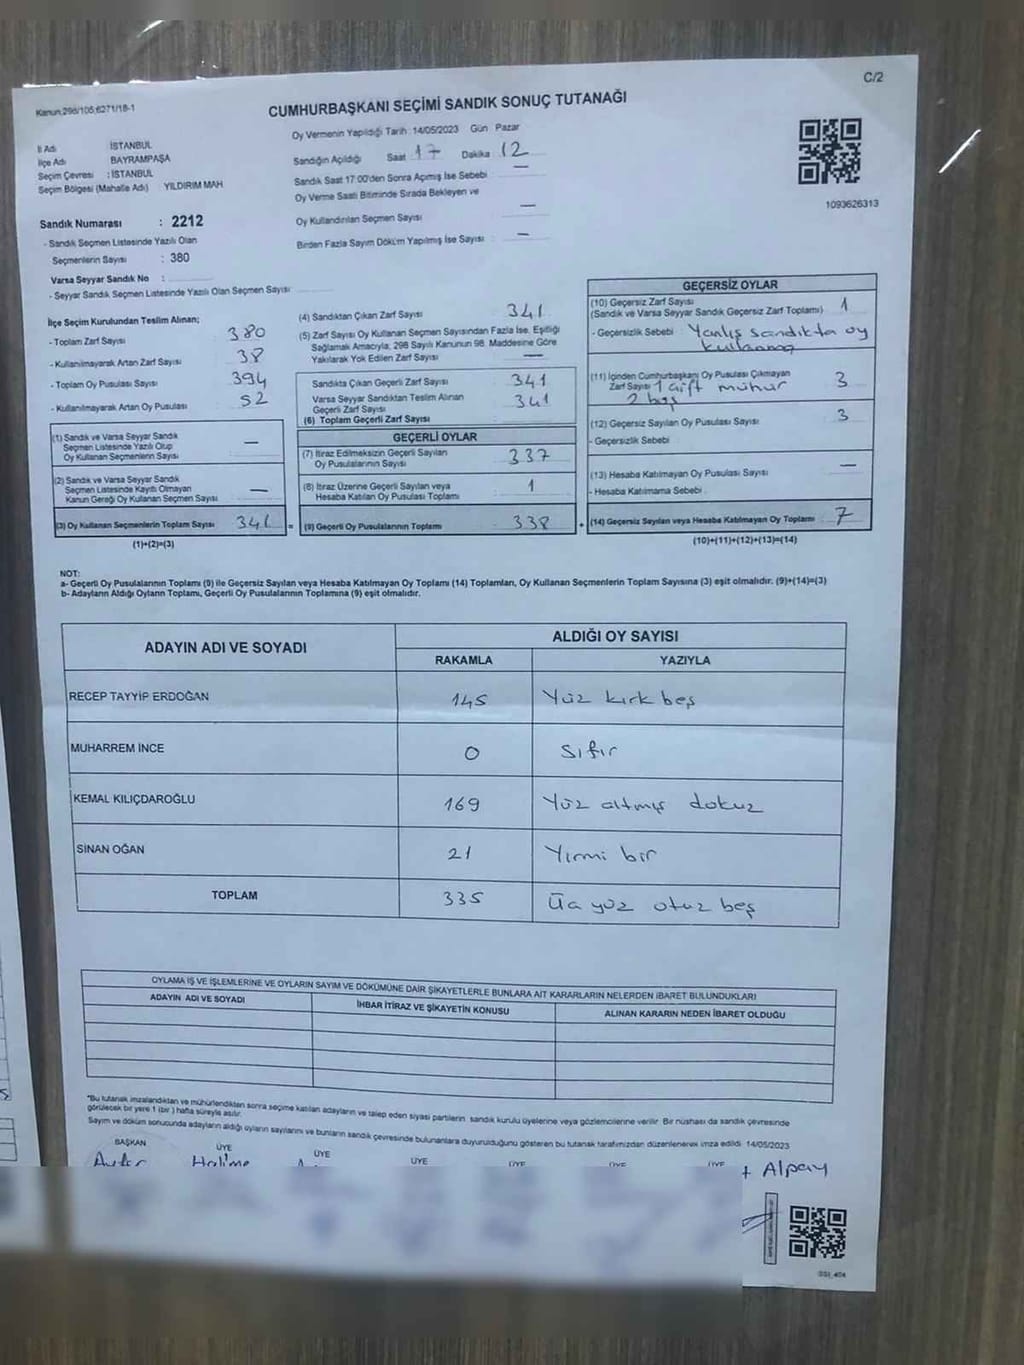 C/2
Kanun,298/105;6271/18-1
CUMHURBAŞKANI SEÇİMİ SANDIK SONUÇ TUTANAĞI
İl Adı İSTANBUL
İlçe Adı BAYRAMPAŞA
Seçim Çevresi : İSTANBUL
Seçim Bölgesi (Mahalle Adı) YILDIRIM MAH
Sandık Numarası : 2212
- Sandık Seçmen Listesinde Yazılı Olan
Seçmenlerin Sayısı : 380
Varsa Seyyar Sandık No :
- Seyyar Sandık Seçmen Listesinde Yazılı Olan Seçmen Sayısı
Oy Vermenin Yapıldığı Tarih : 14/05/2023 Gün Pazar
Sandığın Açıldığı Saat 17 Dakika 12
Sandık Saat 17:00'den Sonra Açılmış İse Sebebi —
Oy Verme Saati Bitiminde Sırada Bekleyen ve
Oy Kullandırılan Seçmen Sayısı —
Birden Fazla Sayım Döküm Yapılmış İse Sayısı —
1093626313
İlçe Seçim Kurulundan Teslim Alınan;
- Toplam Zarf Sayısı 380
- Kullanılmayarak Artan Zarf Sayısı 38
- Toplam Oy Pusulası Sayısı 394
- Kullanılmayarak Artan Oy Pusulası 52
(1) Sandık ve Varsa Seyyar Sandık
Seçmen Listesinde Yazılı Olup
Oy Kullanan Seçmenlerin Sayısı —
(2) Sandık ve Varsa Seyyar Sandık
Seçmen Listesinde Kayıtlı Olmayan
Kanun Gereği Oy Kullanan Seçmen Sayısı —
(3) Oy Kullanan Seçmenlerin Toplam Sayısı 341
(1)+(2)=(3)
(4) Sandıktan Çıkan Zarf Sayısı 341
(5) Zarf Sayısı Oy Kullanan Seçmen Sayısından Fazla İse, Eşitliği
Sağlamak Amacıyla; 298 Sayılı Kanunun 98. Maddesine Göre
Yakılarak Yok Edilen Zarf Sayısı —
Sandıkta Çıkan Geçerli Zarf Sayısı 341
Varsa Seyyar Sandıktan Teslim Alınan
Geçerli Zarf Sayısı 341
(6) Toplam Geçerli Zarf Sayısı
GEÇERLİ OYLAR
(7) İtiraz Edilmeksizin Geçerli Sayılan
Oy Pusulalarının Sayısı 337
(8) İtiraz Üzerine Geçerli Sayılan veya
Hesaba Katılan Oy Pusulası Toplamı 1
= (9) Geçerli Oy Pusulalarının Toplamı 338
GEÇERSİZ OYLAR
(10) Geçersiz Zarf Sayısı
(Sandık ve Varsa Seyyar Sandık Geçersiz Zarf Toplamı) 1
- Geçersizlik Sebebi Yanlış sandıkta oy
kullanma
(11) İçinden Cumhurbaşkanı Oy Pusulası Çıkmayan
Zarf Sayısı 1 Çift mühür 3
2 boş
(12) Geçersiz Sayılan Oy Pusulası Sayısı 3
- Geçersizlik Sebebi
(13) Hesaba Katılmayan Oy Pusulası Sayısı —
- Hesaba Katılmama Sebebi
+ (14) Geçersiz Sayılan veya Hesaba Katılmayan Oy Toplamı 7
(10)+(11)+(12)+(13)=(14)
NOT:
a- Geçerli Oy Pusulalarının Toplamı (9) ile Geçersiz Sayılan veya Hesaba Katılmayan Oy Toplamı (14) Toplamları, Oy Kullanan Seçmenlerin Toplam Sayısına (3) eşit olmalıdır. (9)+(14)=(3)
b- Adayların Aldığı Oyların Toplamı, Geçerli Oy Pusulalarının Toplamına (9) eşit olmalıdır.
ADAYIN ADI VE SOYADI
ALDIĞI OY SAYISI
RAKAMLA YAZIYLA
RECEP TAYYİP ERDOĞAN 145 Yüz kırk beş
MUHARREM İNCE 0 Sıfır
KEMAL KILIÇDAROĞLU 169 Yüz altmış dokuz
SİNAN OĞAN 21 Yirmi bir
TOPLAM 335 Üç yüz otuz beş
OYLAMA İŞ VE İŞLEMLERİNE VE OYLARIN SAYIM VE DÖKÜMÜNE DAİR ŞİKAYETLERLE BUNLARA AİT KARARLARIN NELERDEN İBARET BULUNDUKLARI
ADAYIN ADI VE SOYADI İHBAR İTİRAZ VE ŞİKAYETİN KONUSU ALINAN KARARIN NEDEN İBARET OLDUĞU
*Bu tutanak imzalandıktan ve mühürlendikten sonra seçime katılan adayların ve talep eden siyasi partilerin sandık kurulu üyelerine veya gözlemcilerine verilir. Bir nüshası da sandık çevresinde
görülecek bir yere 1 (bir) hafta süreyle asılır.
Sayım ve döküm sonucunda adayların aldığı oyların sayılarını ve bunların sandık çevresinde bulunanlara duyurulduğunu gösteren bu tutanak tarafımızdan düzenlenerek imza edildi. 14/05/2023
BAŞKAN ÜYE ÜYE ÜYE ÜYE ÜYE ÜYE
Halime
Alpay